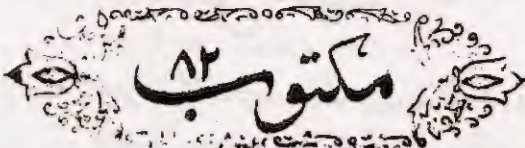 مکتوب ۸۲